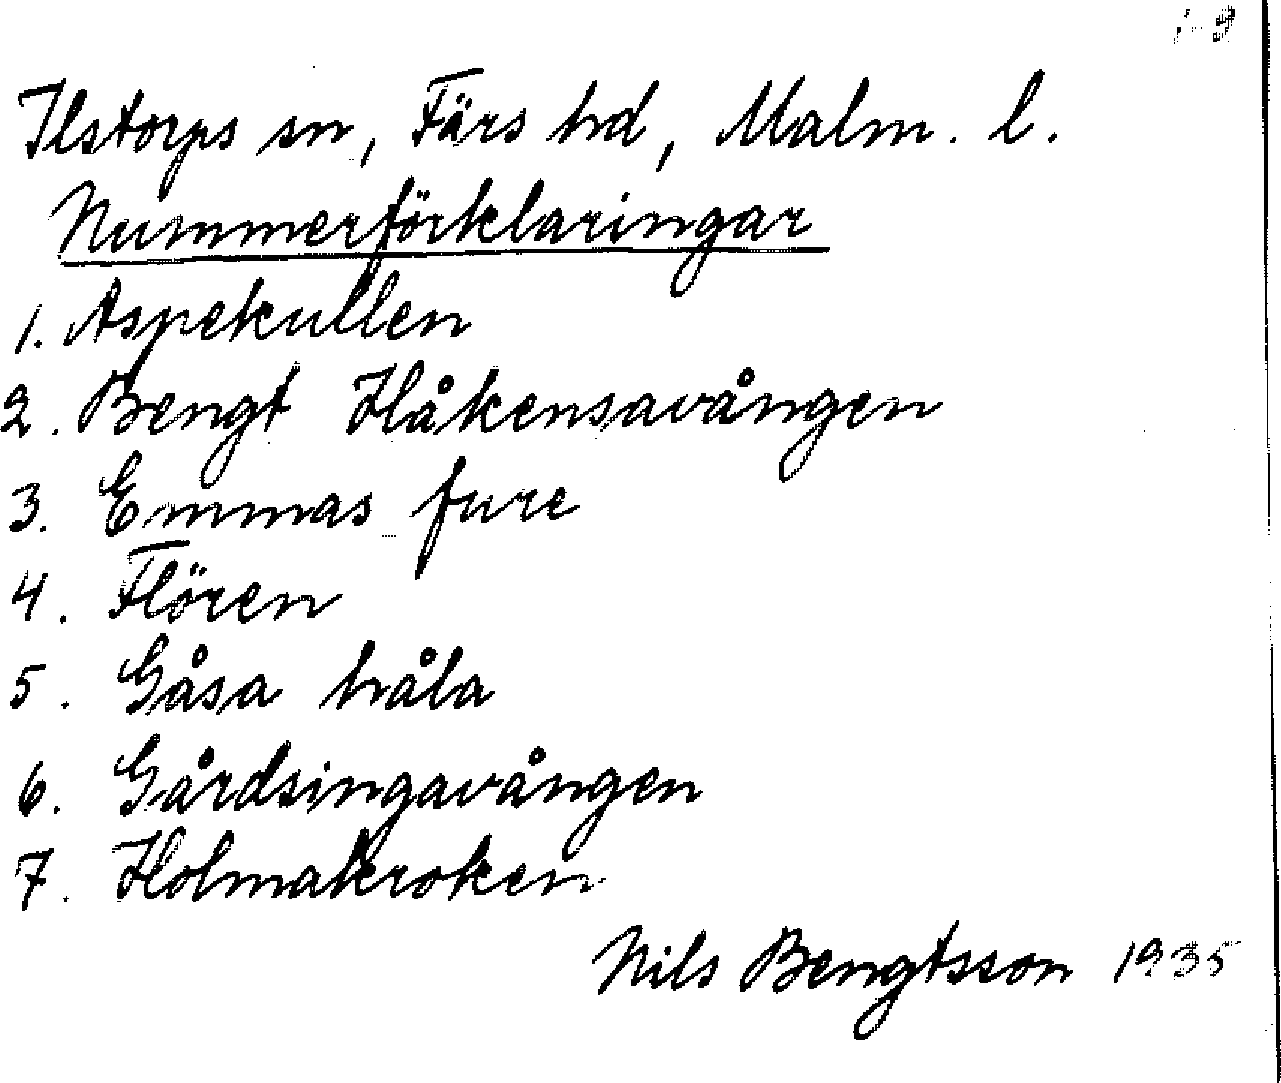 1-9
Ilstorps sn, Färs hd, Malm. l.
Nummerförklaringar
1. Aspekullen
2. Bengt Håkensavången
3. Emmas fure
4. Flören
5. Gåsa håla
6. Gårdsingavången
7. Holmakroken
Nils Bengtsson 1935